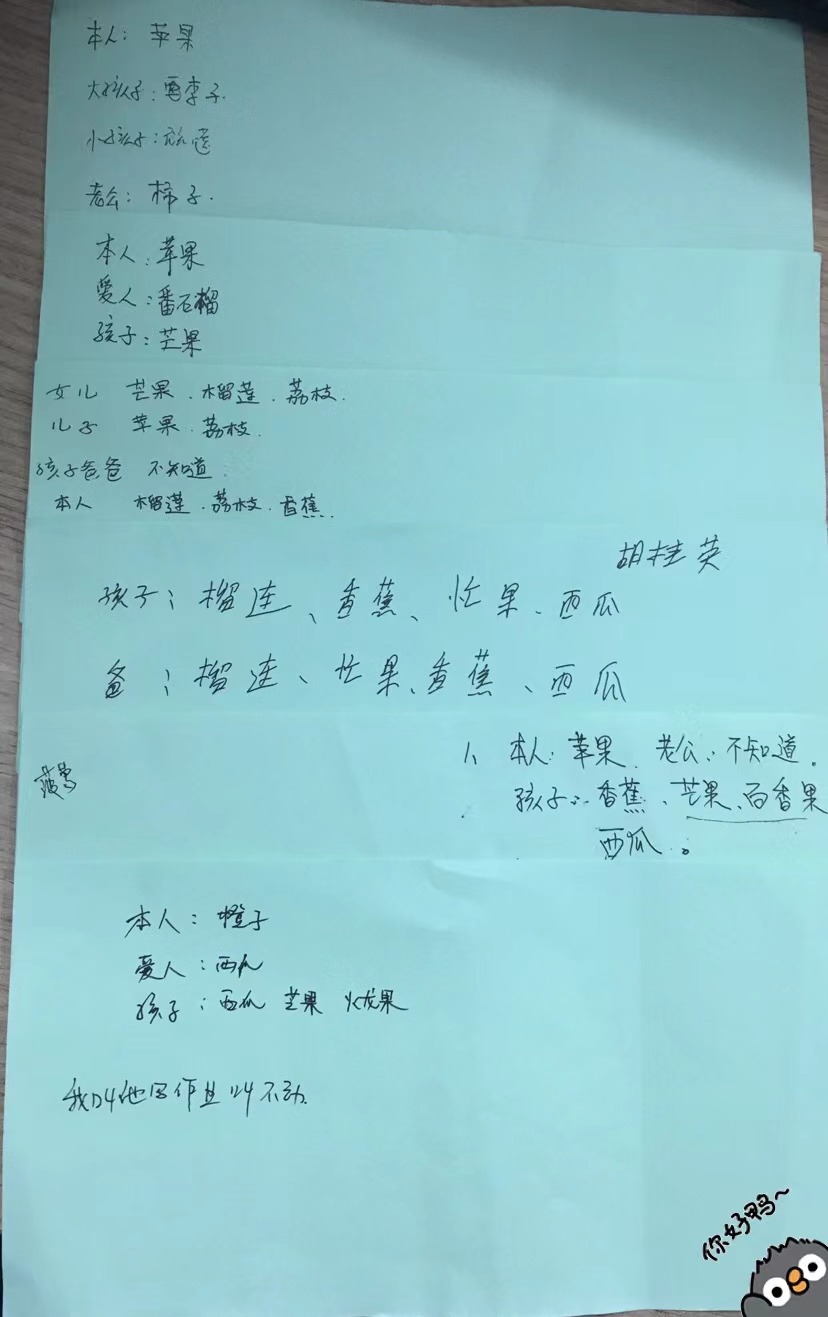 本人：苹果
大孩子：西李子.
小孩子：
老公：柿子.
本人：苹果
爱人：番石榴
孩子：芒果
女儿 芒果.榴莲.荔枝.
儿子 苹果.荔枝.
孩子爸爸 不知道.
本人 榴莲.荔枝.香蕉.
胡桂英
孩子；榴连、香蕉、忙果、西瓜
爸；榴连、忙果、香蕉、西瓜
1、本人：苹果. 老公：不知道.
孩子：香蕉、芒果、百香果
西瓜。
菠萝
本人：橙子
爱人：西瓜
孩子：西瓜 芒果 火龙果
我叫他写作业叫不动.
你好鸭~